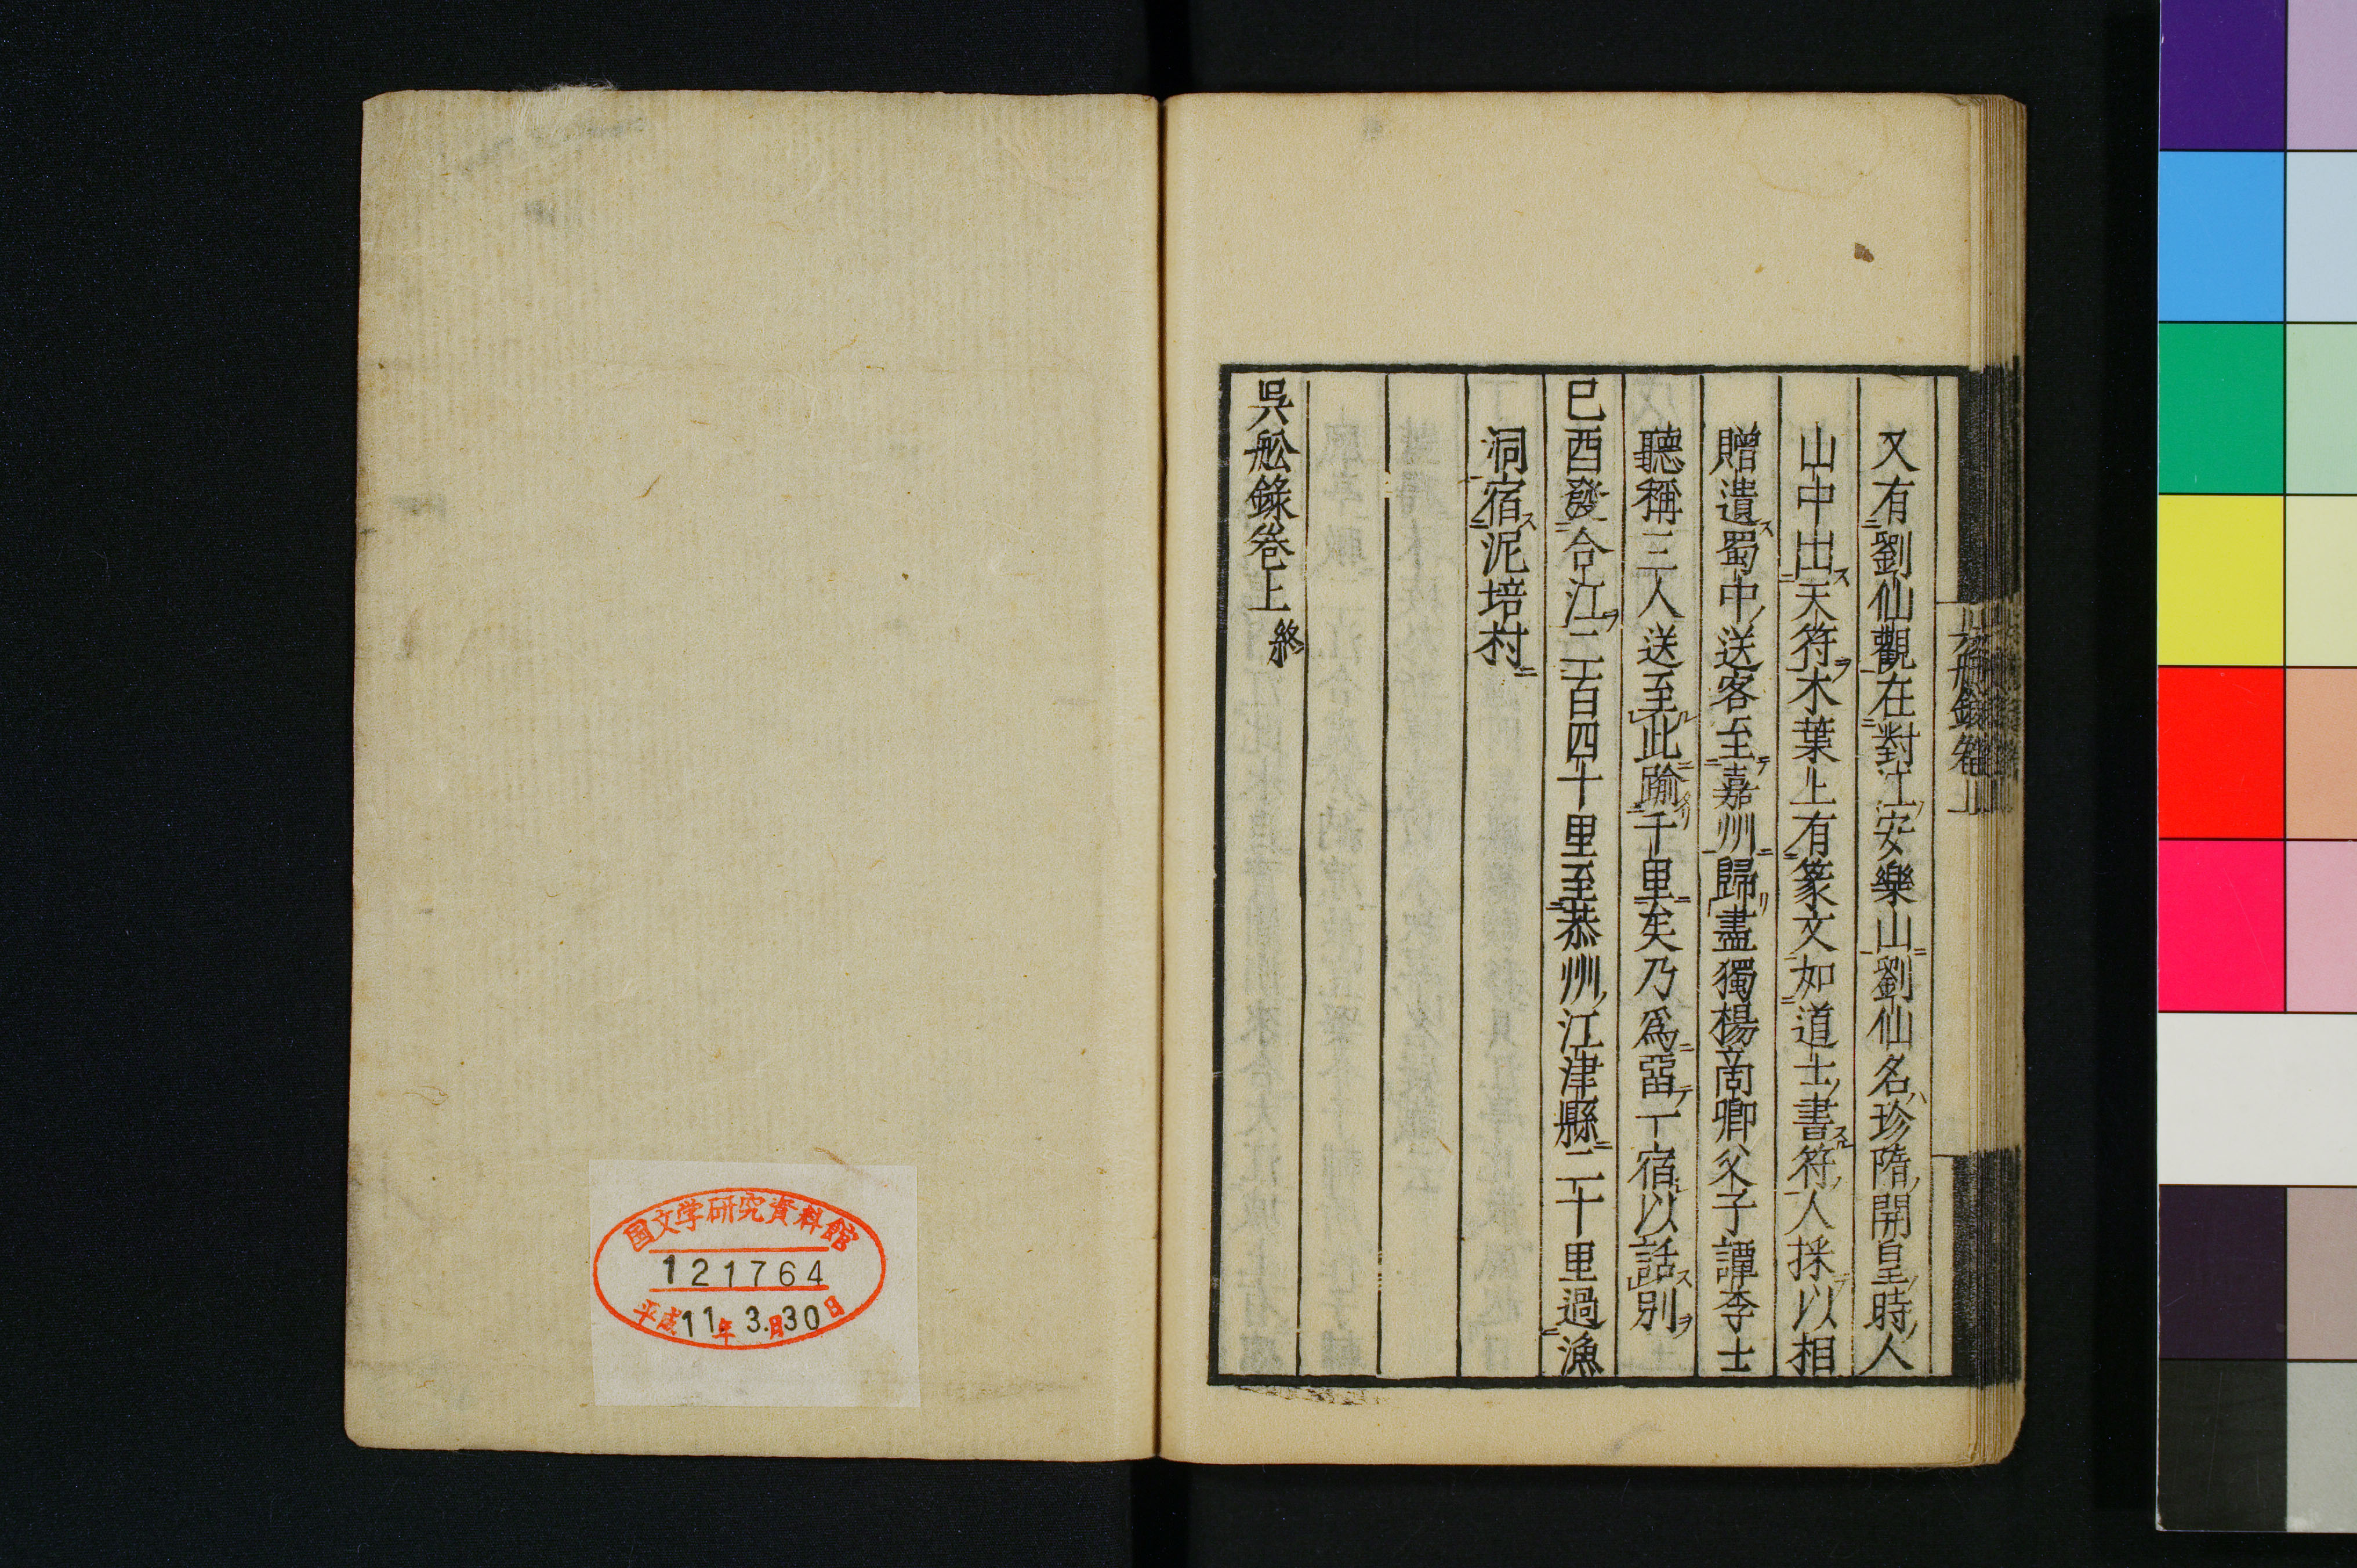 又有劉仙觀在對江安樂山劉仙名珍隋開皇時人
山中出天符木葉上有篆文如道士書符人採以相
贈遺蜀中送客至嘉州歸盡獨楊商卿父子譚季士
聽稱三人送至此踰千里矣乃爲留一宿以話別
己酉發合江二百四十里至恭州江津縣二十里過漁
洞宿泥培村
吳舩錄卷上終
国文学研究資料館
121764
平成11年3月30日